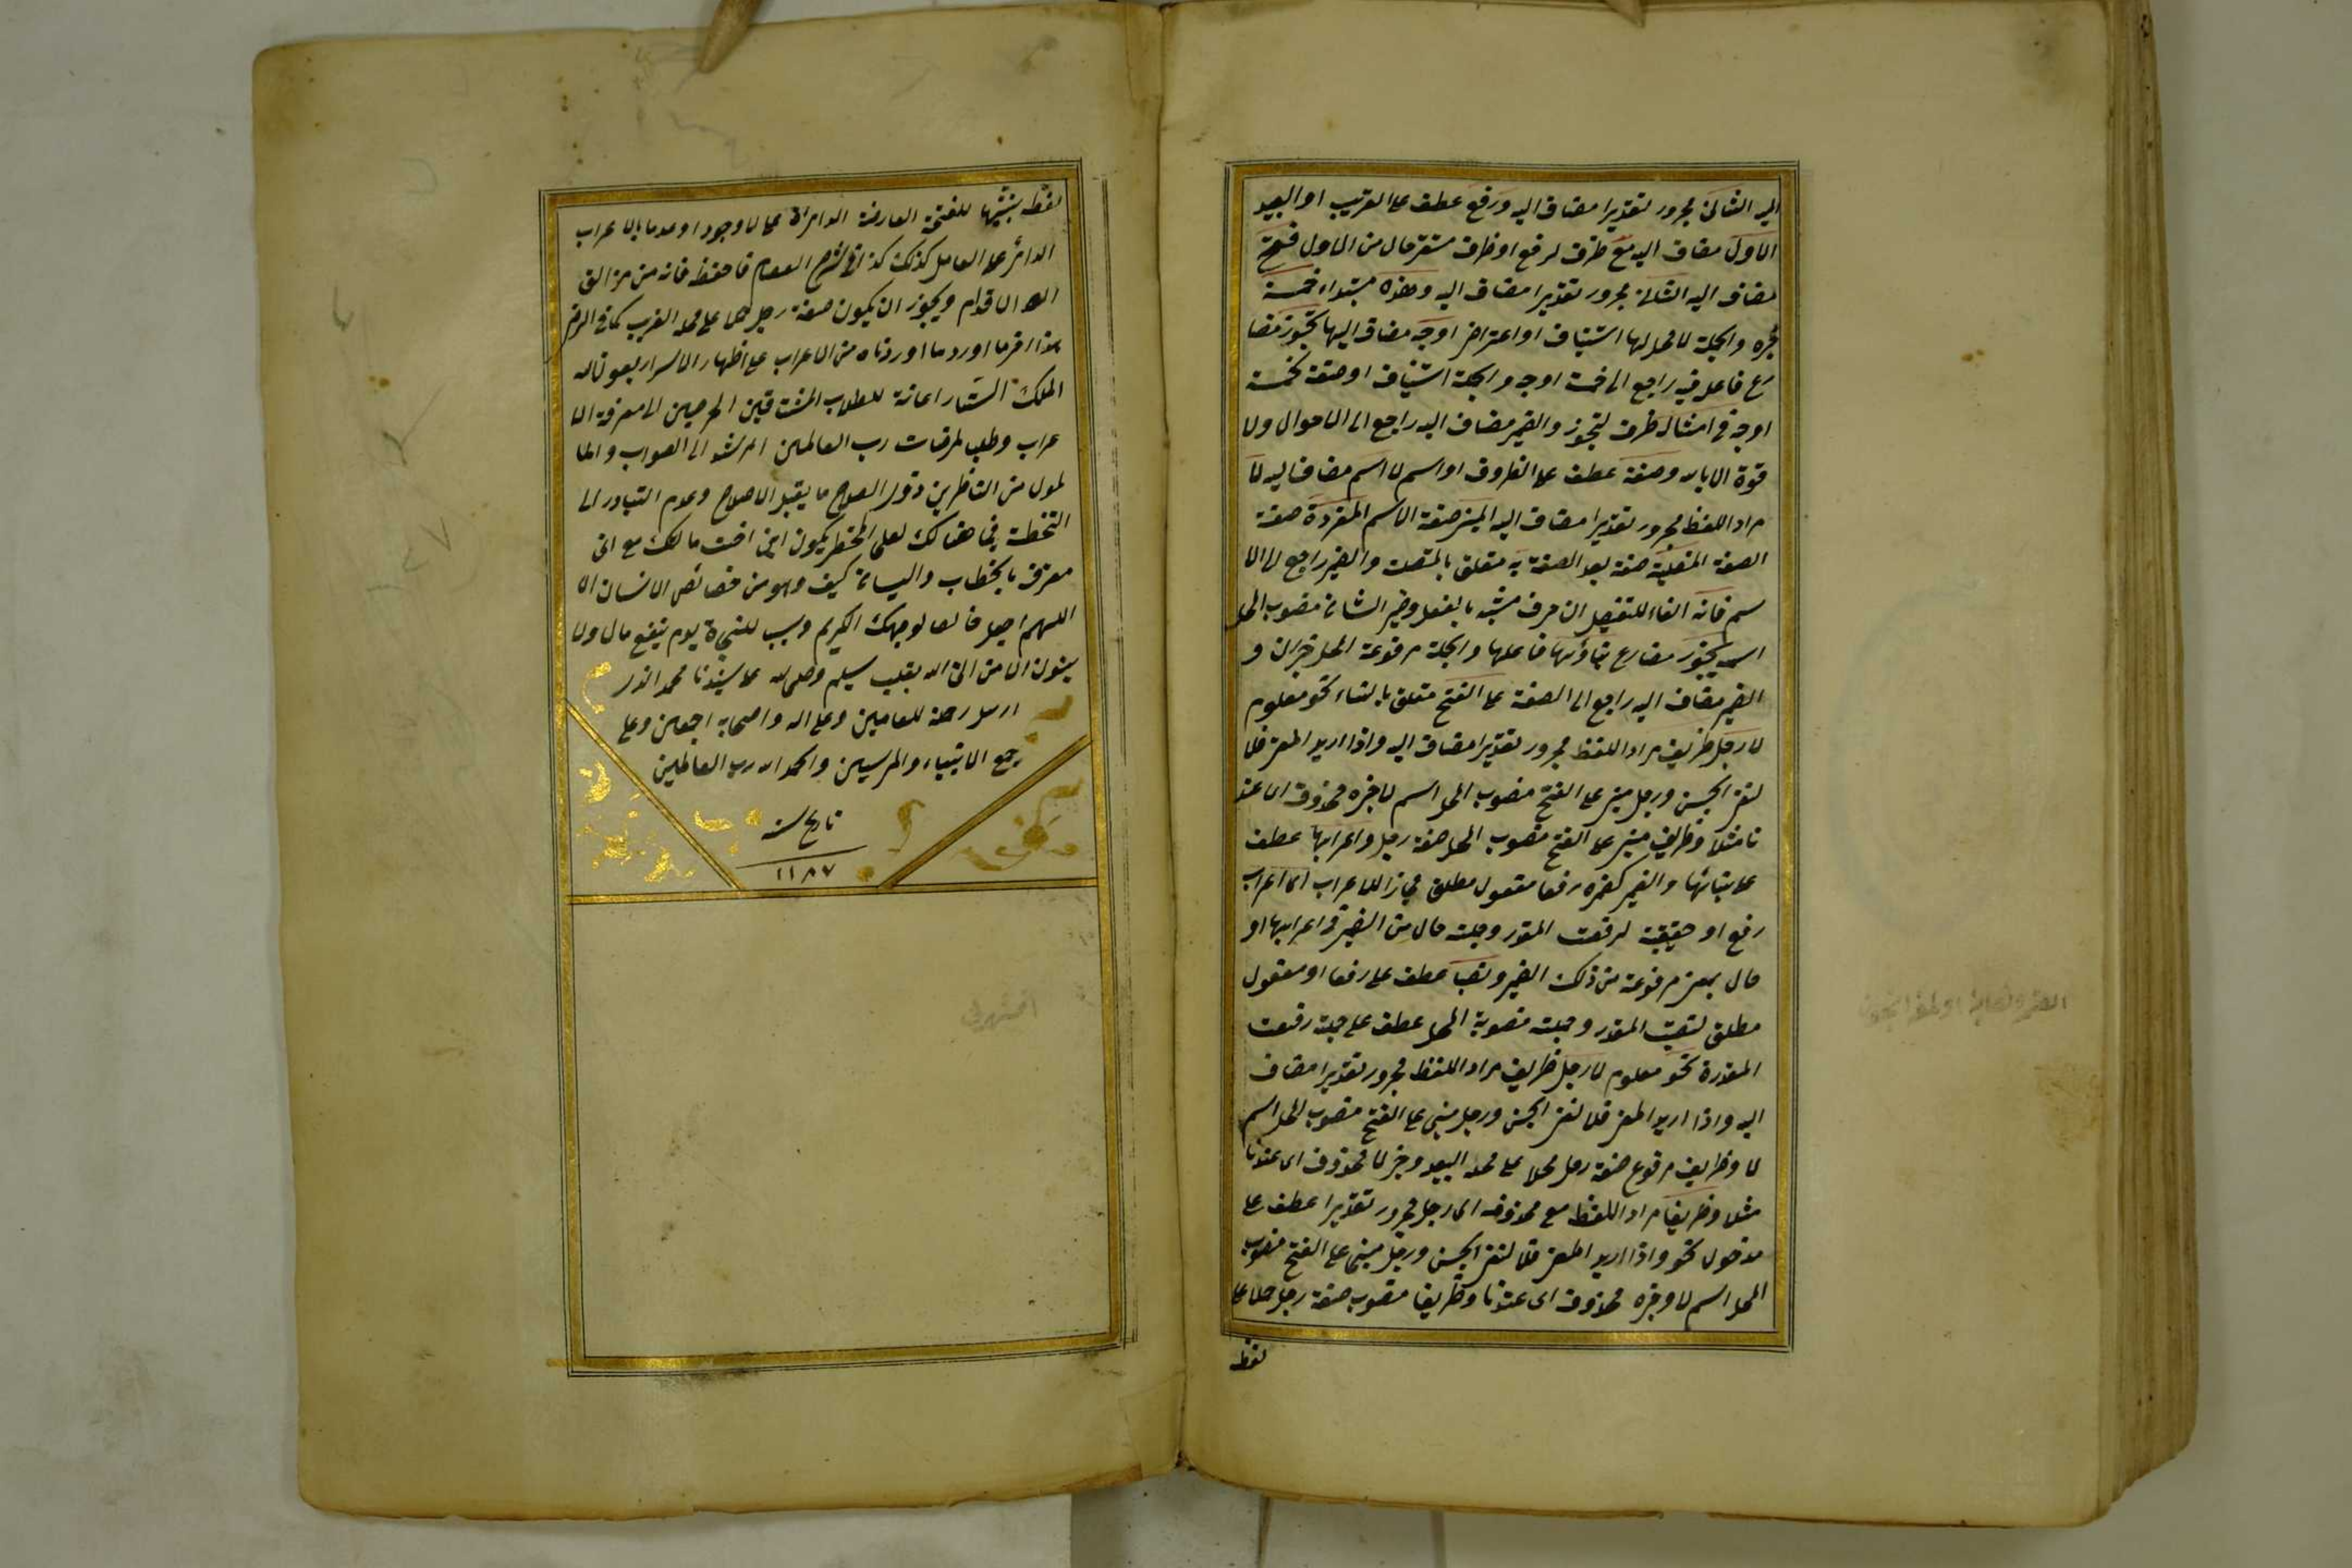 اليه الثانى مجرور تقديرا مضاف اليه ورفع عطف على القريب او البعيد
الاول مضاف اليه مع ظرف لرفع او ظرف مستقر حال من الاول فتحة
مضاف اليه الثانى مجرور تقديرا مضاف اليه وهذه مبتداء خمسة
خبره والجملة لا محل لها استيناف او اعتراض اوجه مضاف اليها يجوز مضا
رع فاعله فيه راجع الى خمسة اوجه والجملة استيناف او صفة لخمسة
اوجه فى امثال ظرف ليجوز والضمير مضاف اليه راجع الى لا حول ولا
قوة الا بالله وصفة عطف على الظروف او اسم لا اسم مضاف اليه لا
مراد اللفظ مجرور تقديرا مضاف اليه المبنى صفة الاسم المفردة صفة
الصفة المتصلة صفة بعد الصفة به متعلق بالمتصلة والضمير راجع الى الا
سم فانه الفاء للتفصيل ان حرف مشبه بالفعل وضمير الشان منصوب المحل
اسمه يجوز مضارع بناؤها فاعلها والجملة مرفوعة المحل خبر ان و
الضمير مضاف اليه راجع الى الصفة على الفتح متعلق بالبناء نحو معلوم
لا رجل ظريف مراد اللفظ مجرور تقديرا مضاف اليه واذا اريد المعنى فلا
لنفى الجنس ورجل مبنى على الفتح منصوب المحل اسم لا خبره محذوف اى عند
نا مثلا وظريف مبنى على الفتح منصوب المحل صفة رجل واعرابها عطف
على بنائها والضمير كضمره رفعا مفعول مطلق مجازا للاعراب اى اعراب
رفع او حقيقة لرفعت المقدر وجملته حال من الضمير فى اعرابها او
حال بمعنى مرفوعة من ذلك الضمير ونصبا عطف على رفعا او مفعول
مطلق لنصبت المقدر وجملته منصوبة المحل عطف على جملة رفعت
المقدرة نحو معلوم لا رجل ظريف مراد اللفظ مجرور تقديرا مضاف
اليه واذا اريد المعنى فلا لنفى الجنس ورجل مبنى على الفتح منصوب المحل اسم
لا وظريف مرفوع صفة رجل حملا على محله البعيد وخبر لا محذوف اى عندنا
مثلا وظريفا مراد اللفظ مع محذوفه اى لا رجل مجرور تقديرا عطف على
مدخول نحو واذا اريد المعنى فلا لنفى الجنس ورجل مبنى على الفتح منصوب
المحل اسم لا وخبره محذوف اى عندنا وظريفا منصوب صفة رجل حملا على
لفظه
لفظه بشبهها للفتحة العارضة الدائرة على لا وجودا وعدما بالاعراب
الدائر على العامل كذلك كذا فى شرح العصام فاحفظ فانه من مزالق
الاقدام ويجوز ان يكون صفة رجل حملا على محله القريب كما فى الرضى
هذا اخر ما اورد ما اوردناه من الاعراب على اظهار الاسرار بعون الله
الملك الستار اعانة للطلاب المشتاقين الحريصين الى معرفة الا
عراب وطلبا لمرضات رب العالمين المرشد الى الصواب والما
مول من الناظرين ذوى الصلاح ما يقبل الاصلاح وعدم التبادر الى
التخطئة فيما هنالك لعلى المخطر يكون اين اخت مالك مع انى
معترف بالخطاب والنسيان كيف وهو من خصائص الانسان الا
اللهم اجعله خالصا لوجهك الكريم وسببا للنجاة يوم ينفع مال ولا
بنون الا من اتى الله بقلب سليم وصلى الله على سيدنا محمد الذى
ارسل رحمة للعالمين وعلى اله واصحابه اجمعين وعلى
جميع الانبياء والمرسلين والحمد لله رب العالمين
تاريخ سنه
١١٨٧